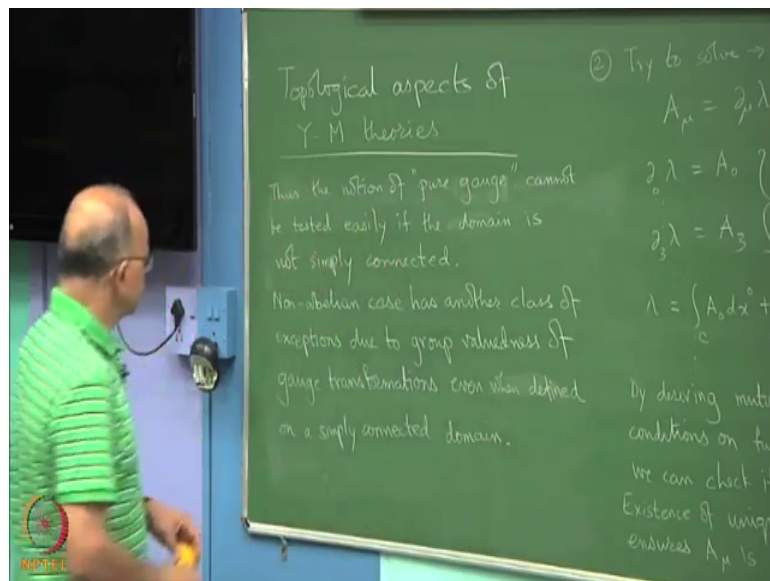 Topological aspects of
Y-M theories
Thus the notion of "pure gauge" cannot
be tested easily if the domain is
not simply connected.
Non-abelian case has another class of
exceptions due to group valuedness of
gauge transformations even when defined
on a simply connected domain.
② Try to solve →
A_μ = ∂_μ λ
∂_0 λ = A_0 {
∂_3 λ = A_3
λ = ∫_C A_0 dx^0 +
By deriving
conditions on
we can check
Existence of
ensures A_μ is
NPTEL